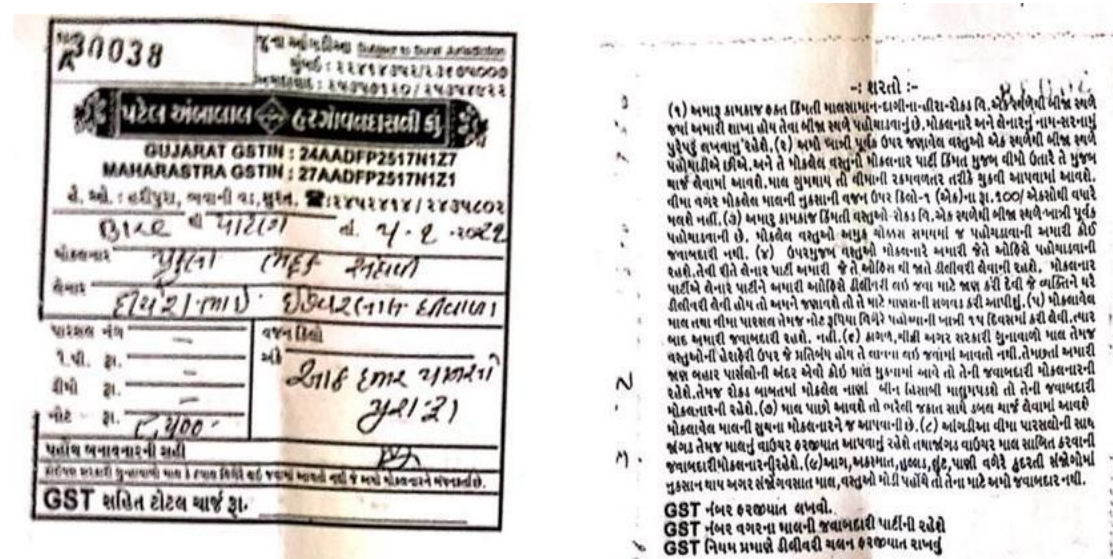 A 30038
જુના આંગડીઆ Subject to Surat Jurisdiction
મુંબઈ :
અમદાવાદ :
પટેલ અંબાલાલ હરગોવનદાસની કું.
GUJARAT GSTIN : 24AADFP2517N1Z7
MAHARASTRA GSTIN : 27AADFP2517N1Z1
હે. ઓ. : હરીપુરા, ભવાની વડ, સુરત. ☎: ૨૪૫૨૪૧૪ / ૨૪૩૫૮૦૨
થી પાટણ તા. ૫-૨-૨૦૨૨
મોકલનાર
લેનાર
પારસલ નંગ વજન કિલો
૧.પી. રૂા. અંકે
વીમો રૂા. આઠ હજાર પાંચસો
નોટ રૂા. ૮૫૦૦ પુરા રૂા
પહોંચ બનાવનારની સહી
GST સહિત ટોટલ ચાર્જ રૂા.
-: શરતો :-
(૧) અમારૂ કામકાજ ફક્ત કિંમતી માલસામાન-દાગીના-હીરા-રોકડ વિ. એક સ્થળેથી બીજા સ્થળે
જ્યાં અમારી શાખા હોય તેવા બીજા સ્થળે પહોંચાડવાનું છે. મોકલનારે અને લેનારનું નામ-સરનામું
પુરેપુરૂં લખવાનું રહેશે. (૨) અમો ખાત્રી પૂર્વક ઉપર જણાવેલ વસ્તુઓ એક સ્થળેથી બીજા સ્થળે
પહોંચાડીએ છીએ. અને તે મોકલેલ વસ્તુની મોકલનાર પાર્ટી કિંમત મુજબ વીમો ઉતારે તે મુજબ
ચાર્જ લેવામાં આવશે. માલ ગુમથાય તો વીમાની રકમવળતર તરીકે ચુકવી આપવામાં આવશે.
વીમા વગર મોકલેલ માલની નુકસાની વજન ઉપર કિલો-૧ (એક)ના રૂા.100/ એકસોથી વધારે
મલશે નહીં. (૩) અમારૂ કામકાજ કિંમતી વસ્તુઓ-રોકડ વિ. એક સ્થળેથી બીજા સ્થળે ખાત્રી પૂર્વક
પહોંચાડવાની છે. મોકલેલ વસ્તુઓ અમુક ચોક્કસ સમયમાં જ પહોંચાડવાની અમારી કોઈ
જવાબદારી નથી. (૪) ઉપરમુજબ વસ્તુઓ મોકલનારે અમારી જેતે ઓફિસે પહોંચાડવાની
રહશે. તેવી રીતે લેનાર પાર્ટી અમારી જે તે ઓફિસ થી જાતે ડીલીવરી લેવાની રહશે. મોકલનાર
પાર્ટીએ લેનાર પાર્ટીને અમારી ઓફિસે ડીલીવરી લઇ જવા માટે જાણ કરી દેવી જે વ્યક્તિને ઘરે
ડીલીવરી લેવી હોય તો અમને જણાવશે તો તે માટે માણસની સગવડ કરી આપીશું. (૫) મોકલાવેલ
માલ તથા વીમા પારસલ તેમજ નોટ રૂપિયા વિગેરે પહોંચ્યાની ખાત્રી ૧૫ દિવસમાં કરી લેવી. ત્યાર
બાદ અમારી જવાબદારી રહશે. નહી.
વસ્તુઓની હેરાફેરી ઉપર જે પ્રતિબંધ હોય તે લાવવા લઇ જવામાં આવતો નથી. તેમછતાં અમારી
જાણ બહાર પાર્સલોની અંદર એવો કોઇ માલ મુકવામાં આવે તો તેની જવાબદારી મોકલનારની
રહેશે. તેમજ રોકડ બાબતમાં મોકલેલ નાણાં બીન હિસાબી માલુમપડશે તો તેની જવાબદારી
મોકલનારની રહેશે. (૭) માલ પાછો આવશે તો ભરેલી જકાત સાથે ડબલ ચાર્જ લેવામાં આવશે
મોકલાવેલ માલની સુચના મોકલનારને જ આપવાની છે. (૮) આંગડીઆ વીમા પારસલોની સાથ
જાંગડ તેમજ માલનું વાઉચર ફરજીયાત આપવાનું રહેશે તથા જાંગડ વાઉચર માલ સાબિત કરવાની
જવાબદારી મોકલનારની રહેશે. (૯) આગ, અકસ્માત, હુલ્લડ, લુંટ, પાણી વગેરે કુદરતી સંજોગોમાં
નુકસાન થાય અગર સંજોગવસાત માલ, વસ્તુઓ મોડી પહોંચે તો તેના માટે અમો જવાબદાર નથી.
GST નંબર ફરજીયાત લખવો.
GST નંબર વગરના માલની જવાબદારી પાર્ટીની રહેશે
GST નિયમ પ્રમાણે ડીલીવરી ચલન ફરજીયાત રાખવું